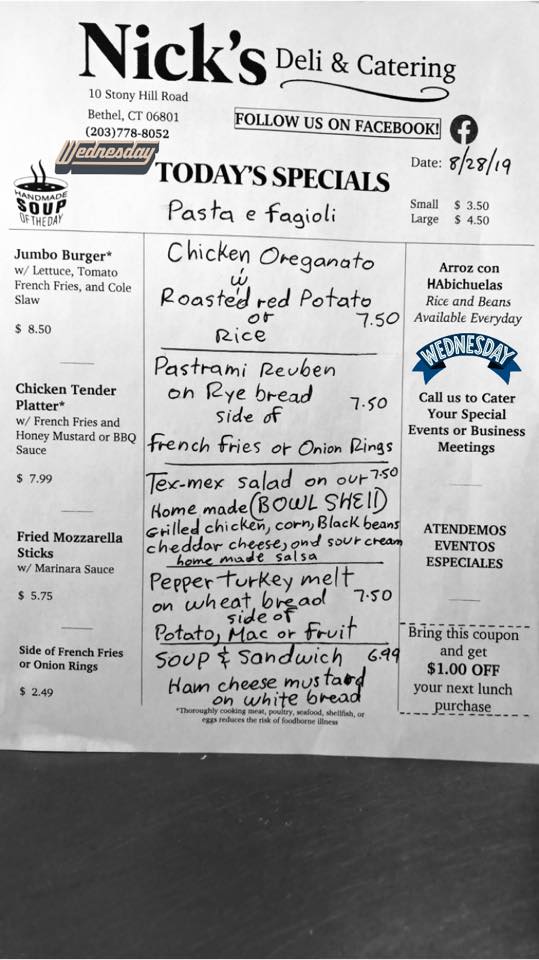 Nick's Deli & Catering
10 Stony Hill Road
Bethel, CT 06801
(203)778-8052
FOLLOW US ON FACEBOOK!
f
Wednesday
TODAY'S SPECIALS
Date: 8/28/19
HANDMADE
SOUP
OF THE DAY
Pasta e fagioli
Small $ 3.50
Large $ 4.50
Jumbo Burger*
w/ Lettuce, Tomato
French Fries, and Cole
Slaw
$ 8.50
Chicken Tender
Platter*
w/ French Fries and
Honey Mustard or BBQ
Sauce
$ 7.99
Fried Mozzarella
Sticks
w/ Marinara Sauce
$ 5.75
Side of French Fries
or Onion Rings
$ 2.49
Chicken Oreganato
w
Roasted red Potato
or 7.50
Rice
Pastrami Reuben
on Rye bread 7.50
side of
french fries or Onion Rings
Tex-mex salad on our 7.50
Home made (BOWL SHEll)
Grilled chicken, corn, Black beans
cheddar cheese, and sour cream
home made salsa
Pepper turkey melt
on wheat bread 7.50
side of
Potato, Mac or fruit
Soup & Sandwich 6.99
Ham cheese mustard
on white bread
*Thoroughly cooking meat, poultry, seafood, shellfish, or
eggs reduces the risk of foodborne illness
Arroz con
HAbichuelas
Rice and Beans
Available Everyday
WEDNESDAY
Call us to Cater
Your Special
Events or Business
Meetings
ATENDEMOS
EVENTOS
ESPECIALES
Bring this coupon
and get
$1.00 OFF
your next lunch
purchase